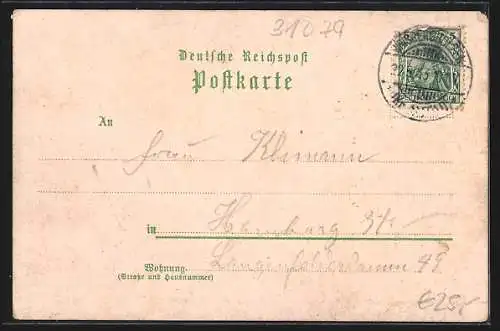 31079
Deutsche Reichspost
Postkarte
An
Frau Klimann
in Hamburg St.
Langenfelderdamm 49
Wohnung
(Straße und Hausnummer)
€25,-